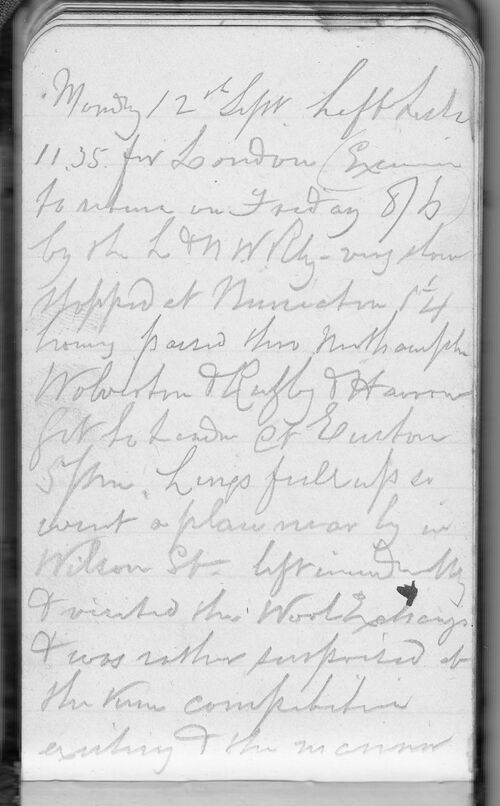 Monday 12th Sept Left Leeds
11.35 for London (Excursion
to return on Friday 8/6)
by the L & N W Rly - very slow
stopped at Nuneaton 1 1/4
hours passed thro Northampton
Wolverton & Rugby & Harrow
got to London at Euston
5 pm. Lings full up so
went a place near by in
Wilson St. left immediately
& visited the Wool Exchange
& was rather surprised at
the keen competition
existing & the manner